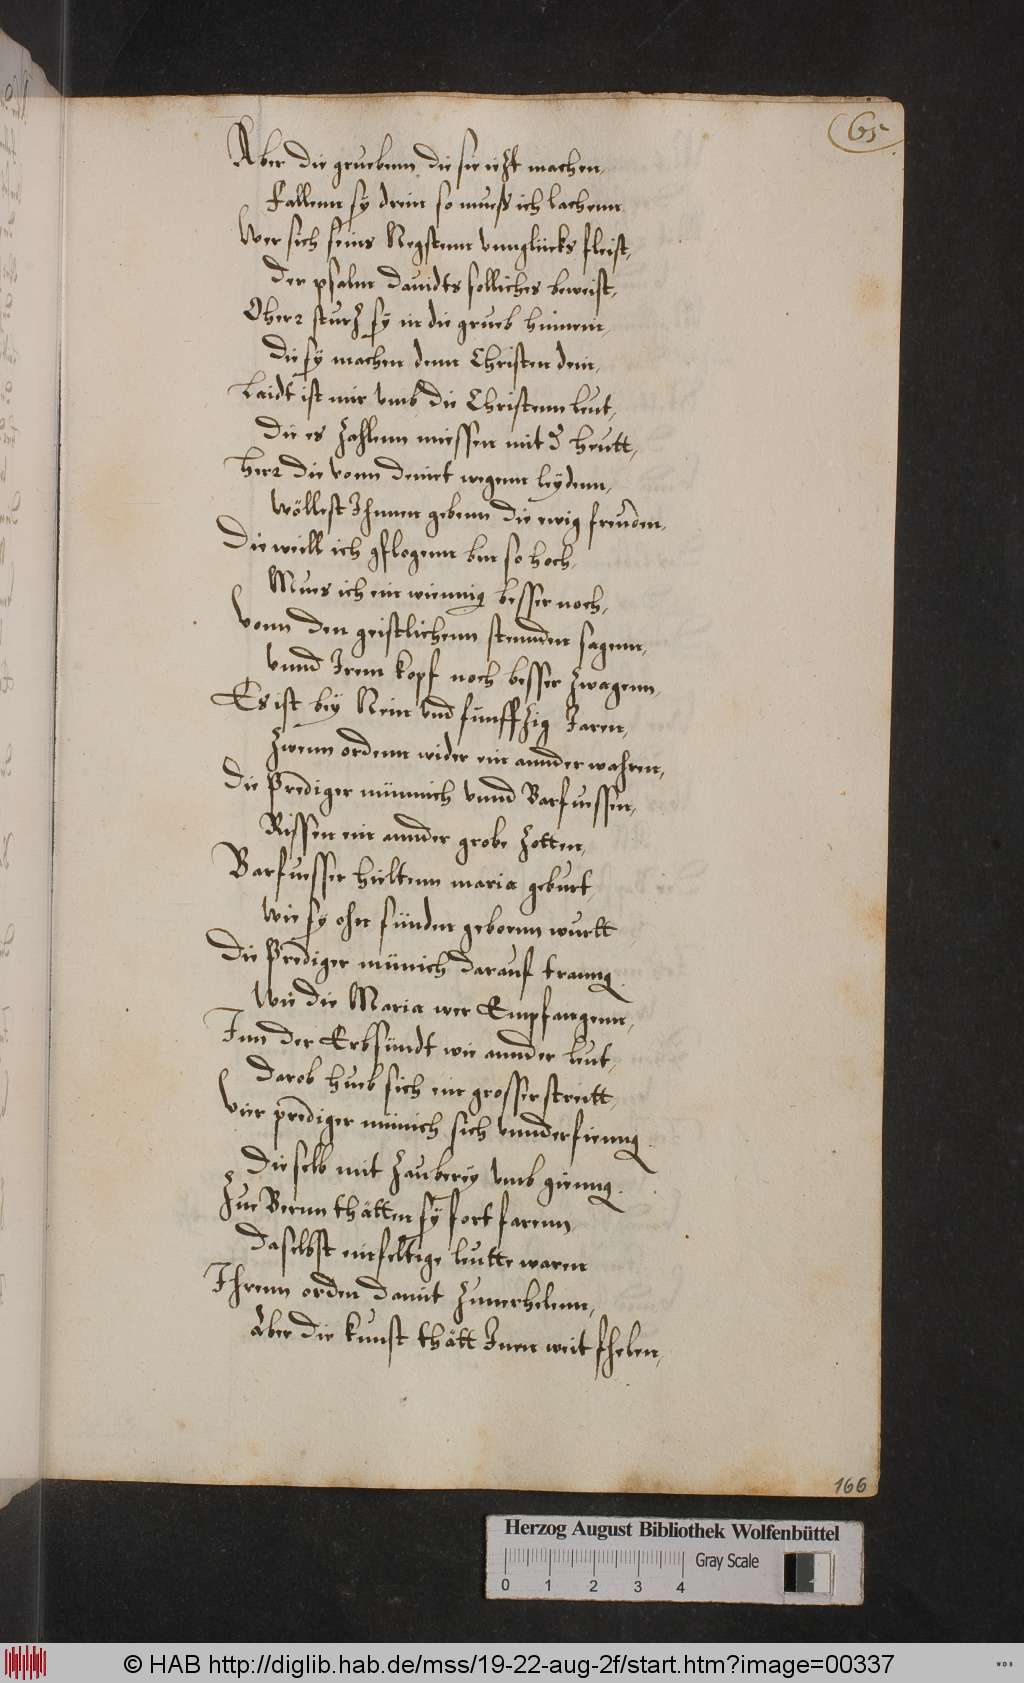 65
Aber die gruebenn die sie iezt machen,
Fallenn sÿ drein so muess ich lachenn
Wer sich seins Negstenn vnnglücks fleist,
Der psalm Dauidts solliches beweist,
O herr sturz sÿ in die grueb hinnein,
die sÿ machen denn Christen dein,
Laidt ist mir vmb die Christenn leut,
Die es Zahlenn miessen mit d heutt,
Herr die vonn deinet wegenn leÿdenn,
Wöllest Ihnnen gebenn die ewig freuden,
Die weill ich gflogenn bin so hoch,
Mues ich ein wiennig besser noch,
Vonn den geistlichenn stennden sagenn,
Vnnd Irem kopf noch besser Zwagenn,
Es ist beÿ Nein vnd funffzig Jaren,
Zwenn ordenn wider ein annder wahren,
Die Prediger münnich vnnd Barfuessen,
Rissen ein annder grobe Zotten,
Barfuesser hieltenn maria geburt,
Wie sÿ ohn sünden geborenn wurtt
Die Prediger münich darauf tranng.
Wie die Maria wer Empfangenn,
Inn der Erbsündt wie annder leut,
Darob hueb sich ein grosser streitt,
Vier prediger münich sich vnnderfienng.
Die selb mit Zauberey vmb gienng.
Zue Bernn thätten sÿ fort farenn,
Daselbst einfeltige leutte waren
Ihrenn orden damit Zuuerhelenn,
Aber die kunst thätt Inen weit fhelen,
166
Herzog August Bibliothek Wolfenbüttel
Gray Scale
0 1 2 3 4
© HAB http://diglib.hab.de/mss/19-22-aug-2f/start.htm?image=00337